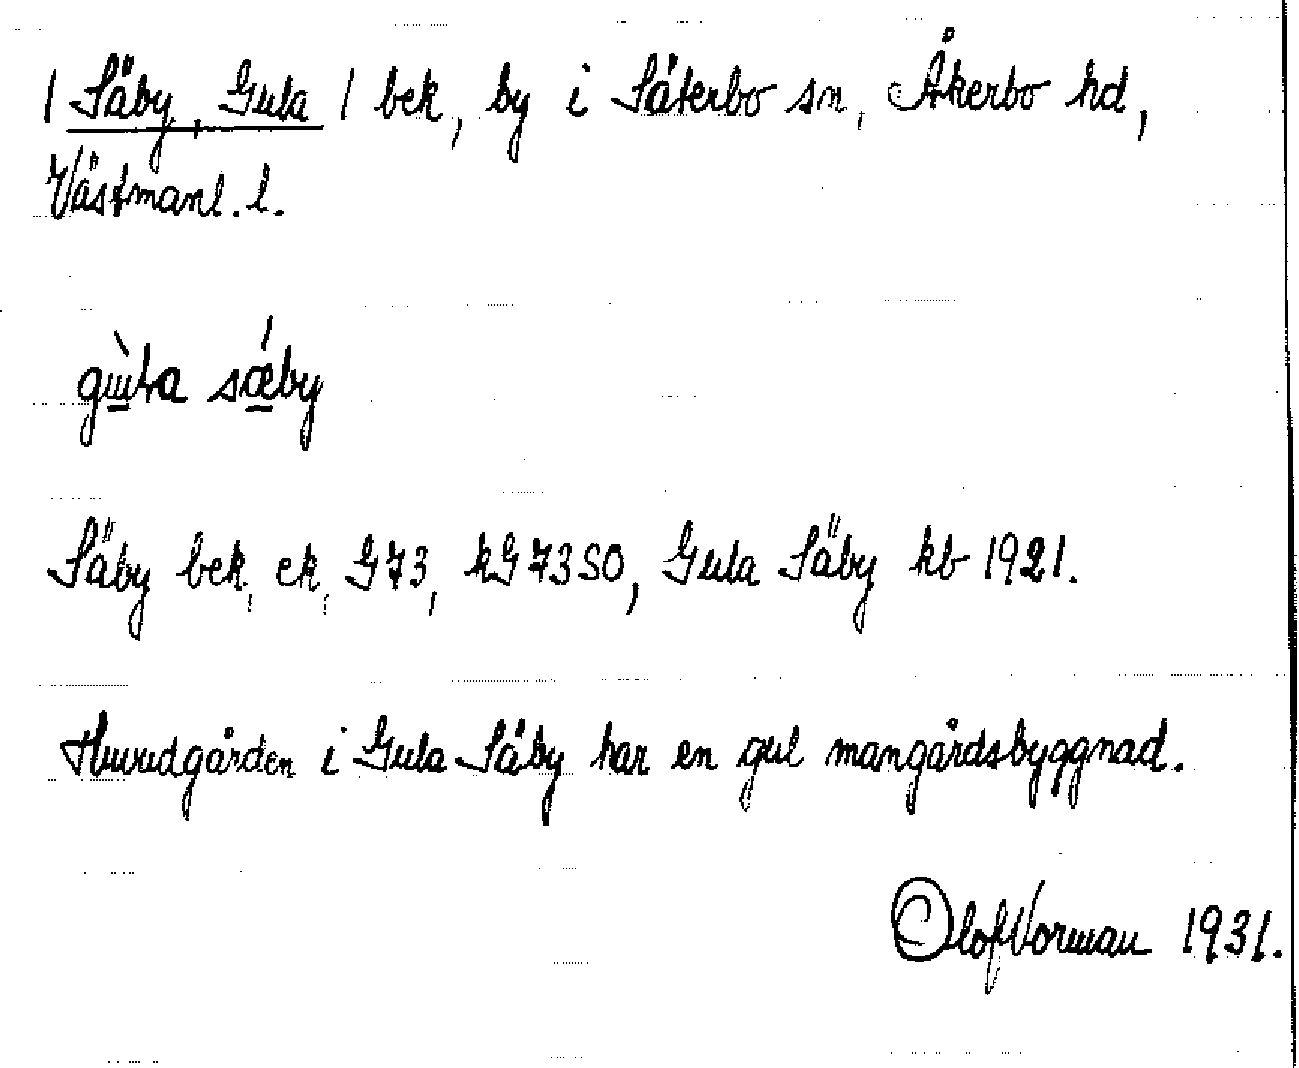 / Säby, Gula / bek, by i Säterbo sn, Åkerbo hd,
Västmanl. l.
Säby bek, ek, G73, kG73SO, Gula Säby kb 1921.
Huvudgården i Gula Säby har en gul mangårdsbyggnad.
Olof Vorman 1931.